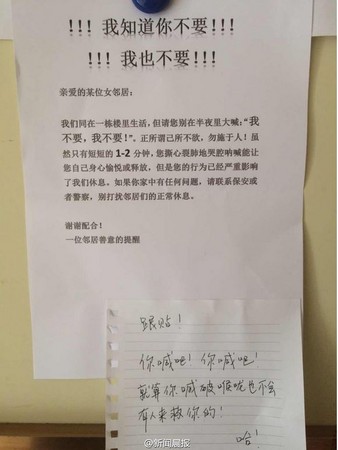 !!! 我知道你不要!!!
!!! 我也不要!!!
亲爱的某位女邻居:
我们同在一栋楼里生活，但请您别在半夜里大喊:“我
不要，我不要!”。正所谓己所不欲，勿施于人！虽
然只有短短的 1-2 分钟，您撕心裂肺地哭腔呐喊能让
您自己身心愉悦或释放，但是您的行为已经严重影响
了我们休息。如果你家中有任何问题，请联系保安或
者警察，别打扰邻居们的正常休息。
谢谢配合！
一位邻居善意的提醒
跟贴！
你喊吧！你喊吧！
就算你喊破喉咙也不会
有人来救你的！
哈！
@新闻晨报